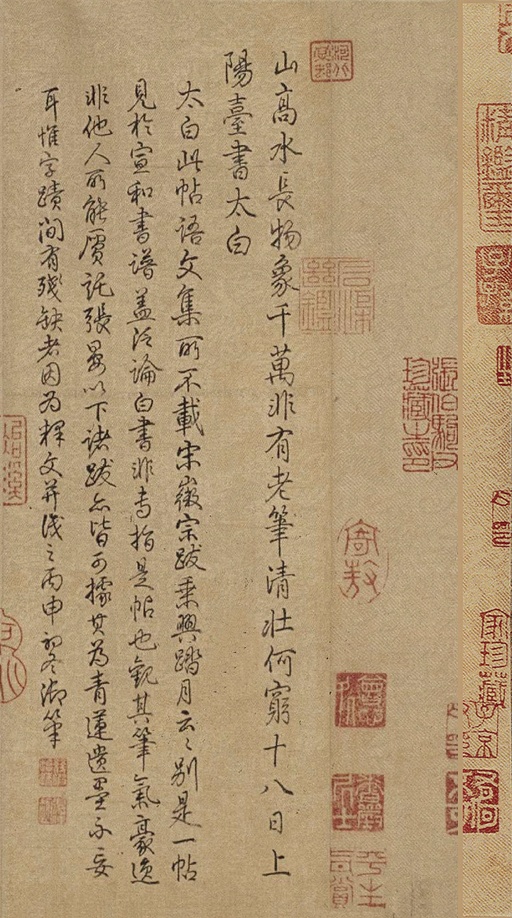 山高水長物象千萬非有老筆清壯何窮十八日上
陽臺書太白
太白此帖語文集所不載宋徽宗跋乘興踏月云云別是一帖
見於宣和書譜蓋泛論白書非專指是帖也觀其筆氣豪逸
非他人所能贋託張晏以下諸跋亦皆可據其為青蓮遺墨不妄
耳惟字蹟間有殘缺者因為釋文并識之丙申初冬御筆